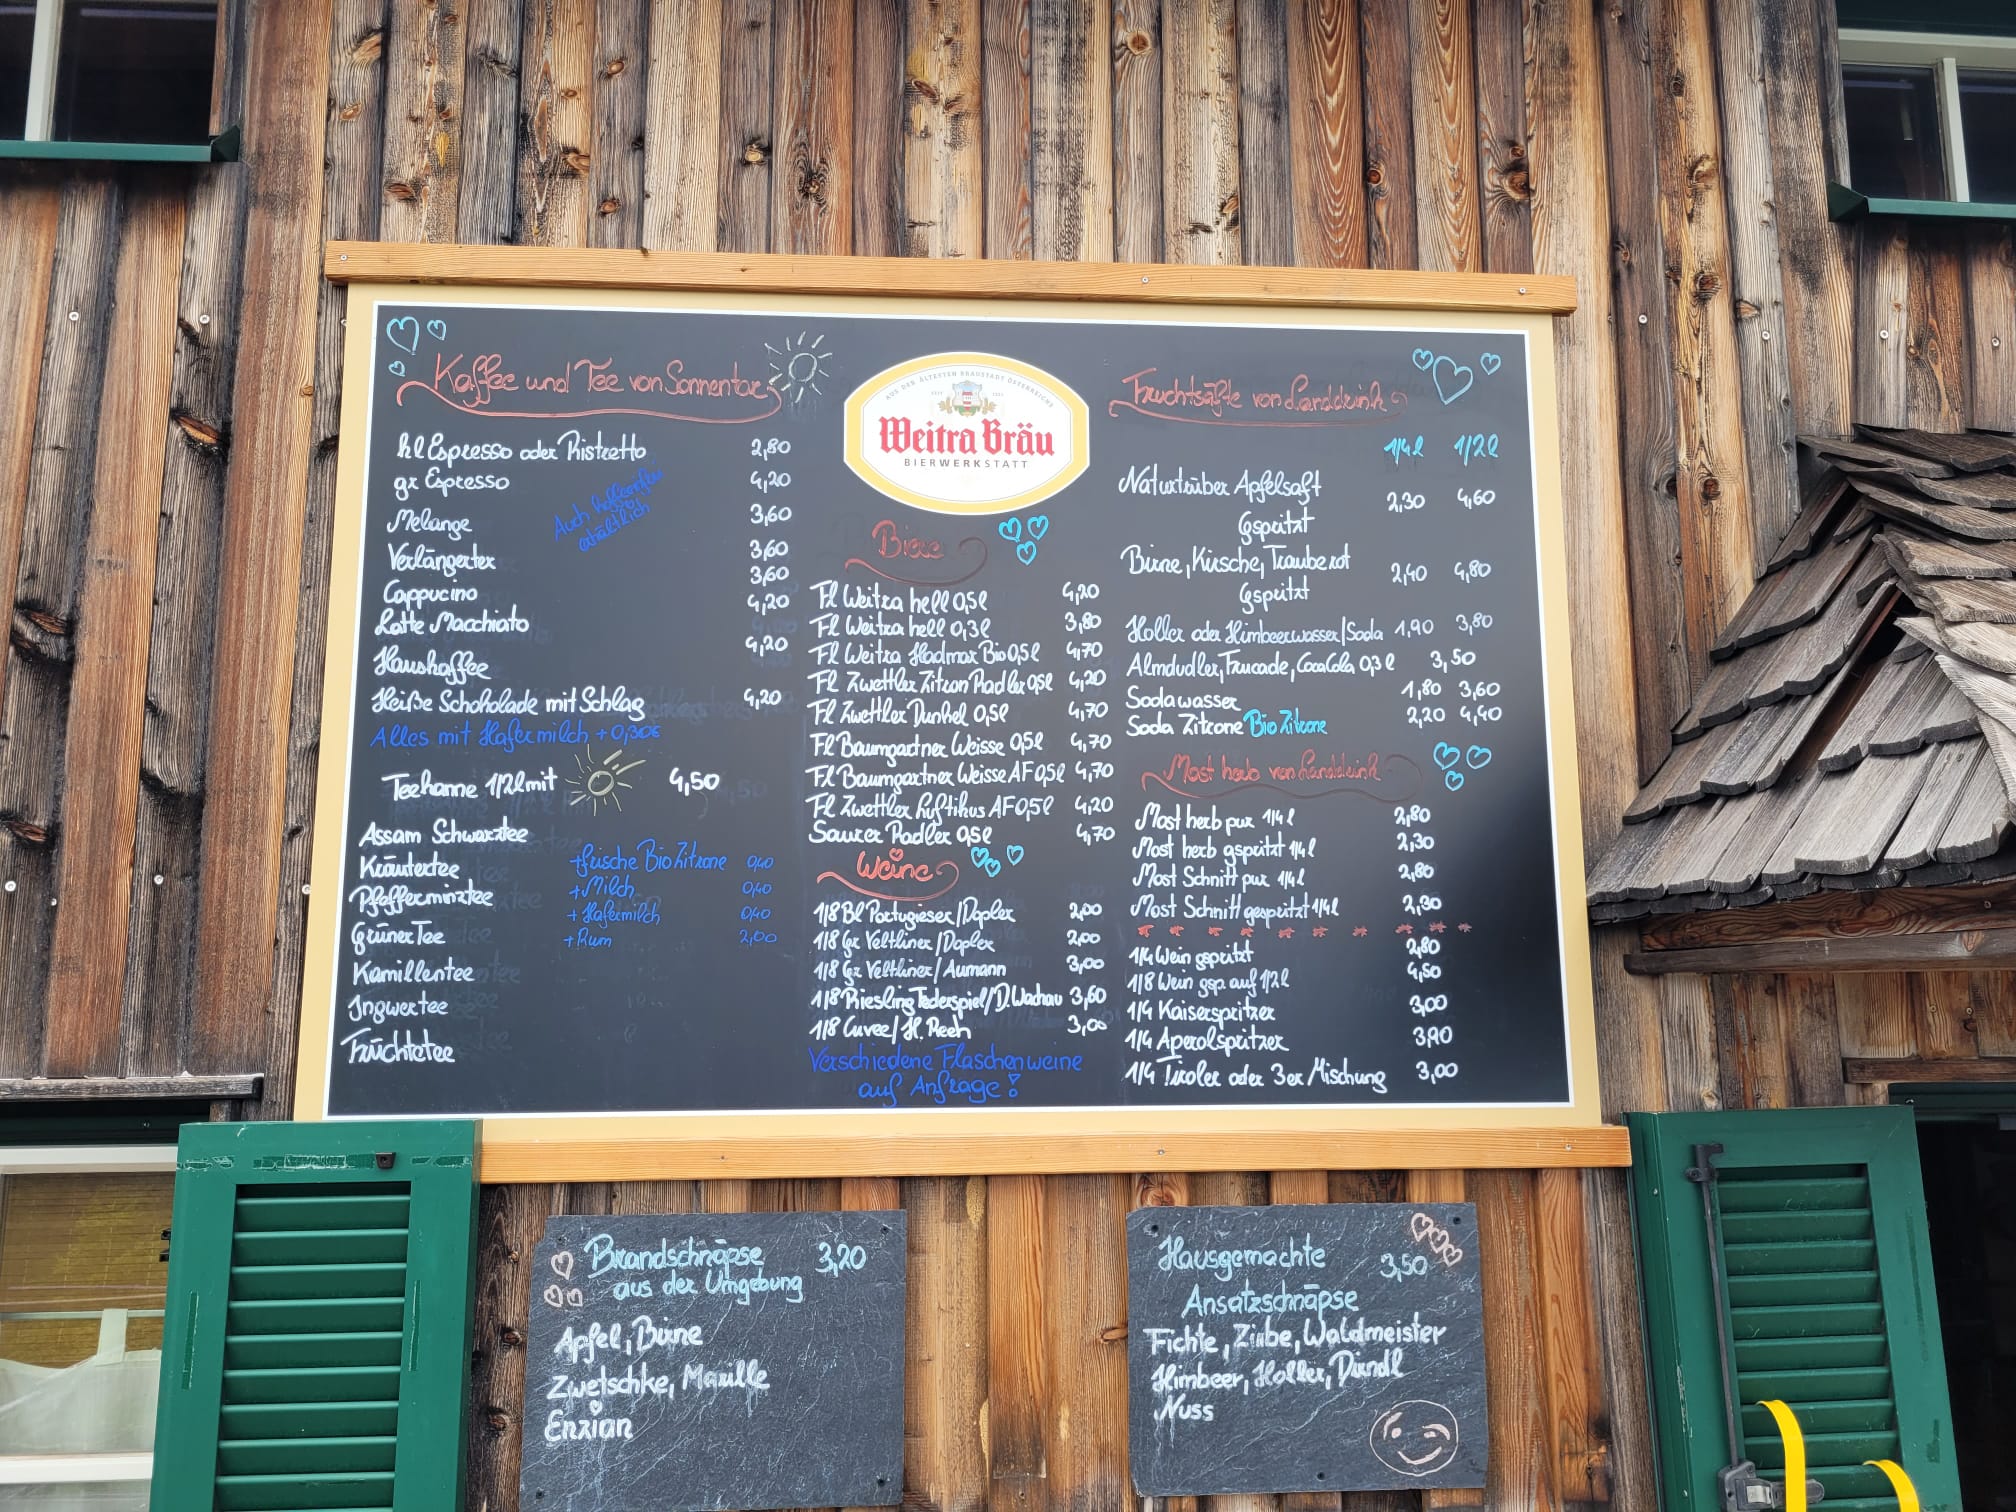 Kaffee und Tee von Sonnentor
kl Espresso oder Ristretto 2,80
gr Espresso 4,20
Melange 3,60
Verlängerter 3,60
Cappucino 3,60
Latte Macchiato 4,20
Hauskaffee 4,20
Heiße Schokolade mit Schlag 4,20
Auch koffeinfrei
erhältlich
Alles mit Hafermilch +0,30€
Teekanne 1/2l mit 4,50
Assam Schwarztee
Kräutertee
Pfefferminztee
Grüner Tee
Kamillentee
Ingwertee
Früchtetee
+frische Bio Zitrone 0,40
+Milch 0,40
+Hafermilch 0,40
+Rum 2,00
AUS DER ÄLTESTEN BRAUSTADT ÖSTERREICHS
SEIT 1321
Weitra Bräu
BIERWERKSTATT
Biere
Fl Weitra hell 0,5l 4,20
Fl Weitra hell 0,3l 3,80
Fl Weitra Hadmar Bio 0,5l 4,70
Fl Zwettler Zitron Radler 0,5l 4,20
Fl Zwettler Dunkel 0,5l 4,70
Fl Baumgartner Weisse 0,5l 4,70
Fl Baumgartner Weisse AF 0,5l 4,70
Fl Zwettler Luftikus AF 0,5l 4,20
Saurer Radler 0,5l 4,70
Weine
1/8 Bl Portugieser/Dopler 2,00
1/8 Gr Veltliner/Dopler 2,00
1/8 Gr Veltliner/Aumann 3,00
1/8 Riesling Federspiel/D. Wachau 3,60
1/8 Cuvee/H. Reeh 3,00
Verschiedene Flaschenweine
auf Anfrage!
Fruchtsäfte von Landdrink
1/4l 1/2l
Naturtrüber Apfelsaft 2,30 4,60
Gspritzt
Birne, Kirsche, Traube rot 2,40 4,80
Gspritzt
Holler oder Himbeerwasser/Soda 1,90 3,80
Almdudler, Frucade, CocaCola 0,3l 3,50
Sodawasser 1,80 3,60
Soda Zitrone Bio Zitrone 2,20 4,40
Most herb von Landdrink
Most herb pur 1/4l 2,80
Most herb gspritzt 1/4l 2,30
Most Schnitt pur 1/4l 2,80
Most Schnitt gespritzt 1/4l 2,30
1/4 Wein gspritzt 2,80
1/8 Wein gsp. auf 1/2l 4,50
1/4 Kaiserspritzer 3,00
1/4 Aperolspritzer 3,90
1/4 Tiroler oder 3er Mischung 3,00
Brandschnäpse 3,20
aus der Umgebung
Apfel, Birne
Zwetschke, Marille
Enzian
Hausgemachte 3,50
Ansatzschnäpse
Fichte, Zirbe, Waldmeister
Himbeer, Holler, Dirndl
Nuss